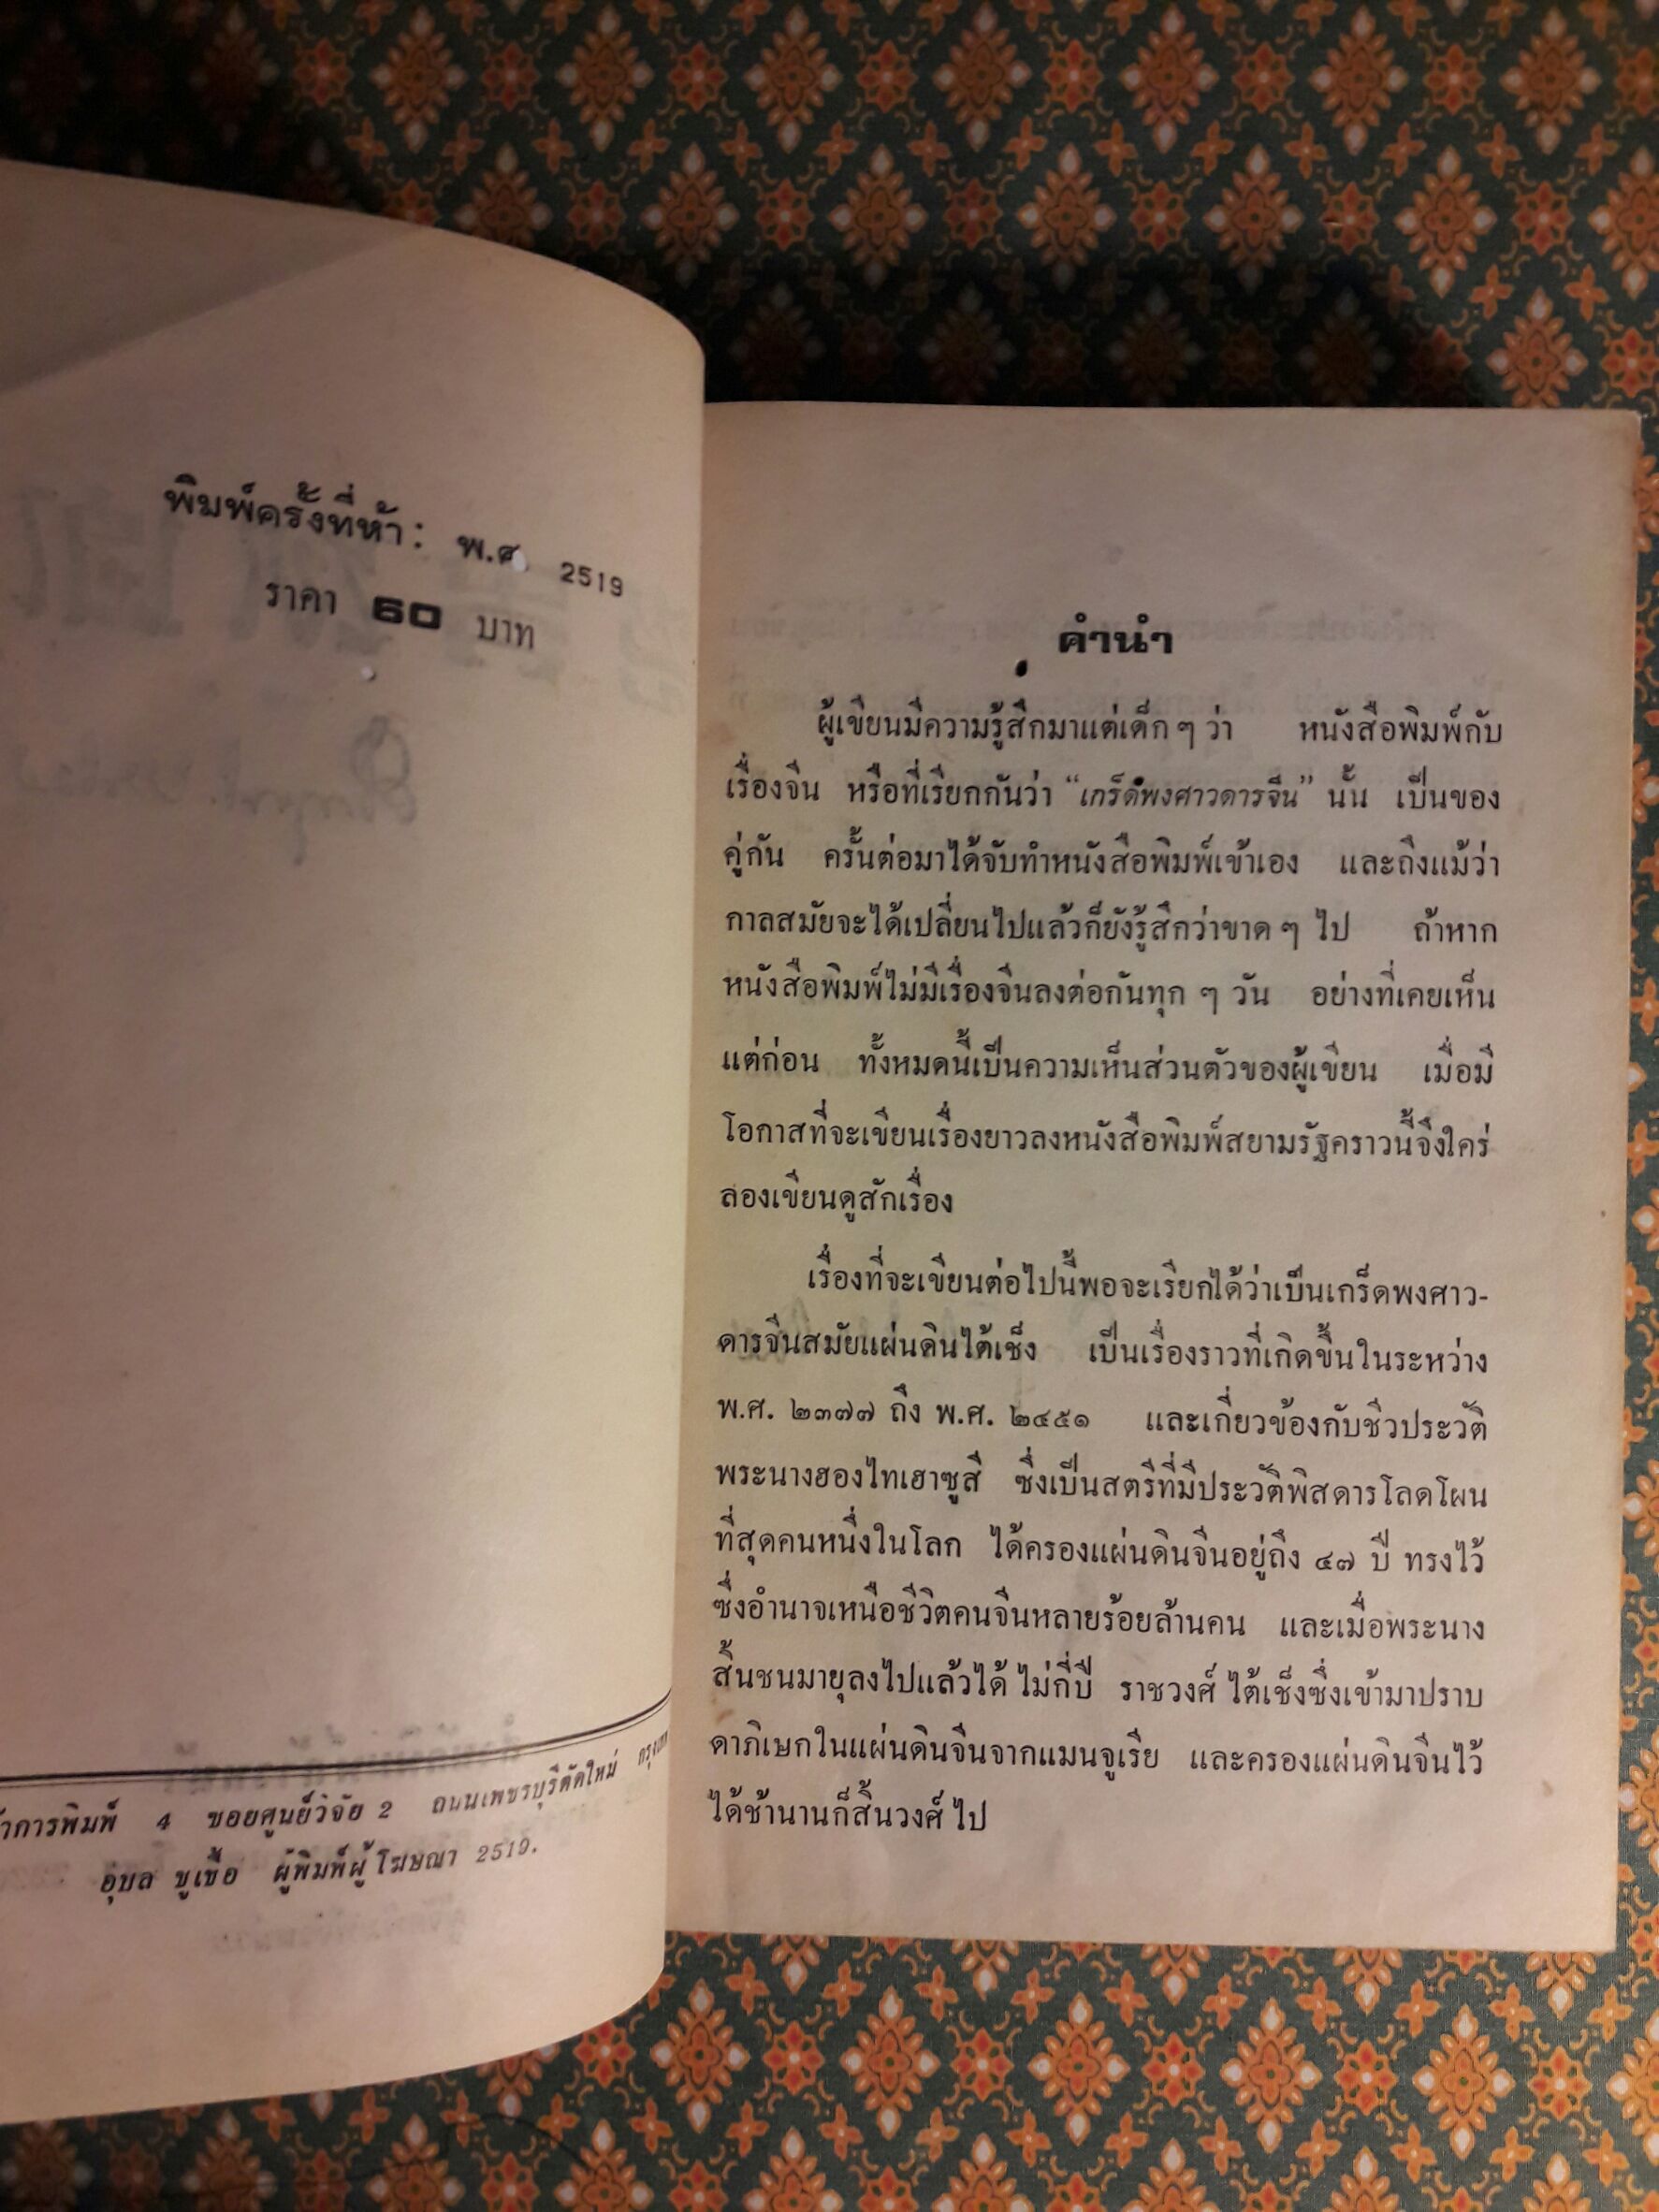 พิมพ์ครั้งที่ห้า: พ.ศ. 2519
ราคา 60 บาท
การพิมพ์ 4 ซอยศูนย์วิจัย 2 ถนนเพชรบุรีตัดใหม่
อุบล ชูเชื้อ ผู้พิมพ์ผู้โฆษณา 2519.
คำนำ
ผู้เขียนมีความรู้สึกมาแต่เด็ก ๆ ว่า หนังสือพิมพ์กับ
เรื่องจีน หรือที่เรียกกันว่า “เกร็ดพงศาวดารจีน” นั้น เป็นของ
คู่กัน ครั้นต่อมาได้จับทำหนังสือพิมพ์เข้าเอง และถึงแม้ว่า
กาลสมัยจะได้เปลี่ยนไปแล้วก็ยังรู้สึกว่าขาด ๆ ไป ถ้าหาก
หนังสือพิมพ์ไม่มีเรื่องจีนลงต่อกันทุก ๆ วัน อย่างที่เคยเห็น
แต่ก่อน ทั้งหมดนี้เป็นความเห็นส่วนตัวของผู้เขียน เมื่อมี
โอกาสที่จะเขียนเรื่องยาวลงหนังสือพิมพ์สยามรัฐคราวนี้จึงใคร่
ลองเขียนดูสักเรื่อง
เรื่องที่จะเขียนต่อไปนี้พอจะเรียกได้ว่าเป็นเกร็ดพงศาว-
ดารจีนสมัยแผ่นดินไต้เช็ง เป็นเรื่องราวที่เกิดขึ้นในระหว่าง
พ.ศ. ๒๓๗๗ ถึง พ.ศ. ๒๔๕๑ และเกี่ยวข้องกับชีวประวัติ
พระนางฮองไทเฮาซูสี ซึ่งเป็นสตรีที่มีประวัติพิสดารโลดโผน
ที่สุดคนหนึ่งในโลก ได้ครองแผ่นดินจีนอยู่ถึง ๔๗ ปี ทรงไว้
ซึ่งอำนาจเหนือชีวิตคนจีนหลายร้อยล้านคน และเมื่อพระนาง
สิ้นชนมายุลงไปแล้วได้ ไม่กี่ปี ราชวงศ์ ไต้เช็งซึ่งเข้ามาปราบ
ดาภิเษกในแผ่นดินจีนจากแมนจูเรีย และครองแผ่นดินจีนไว้
ได้ช้านานก็สิ้นวงศ์ ไป